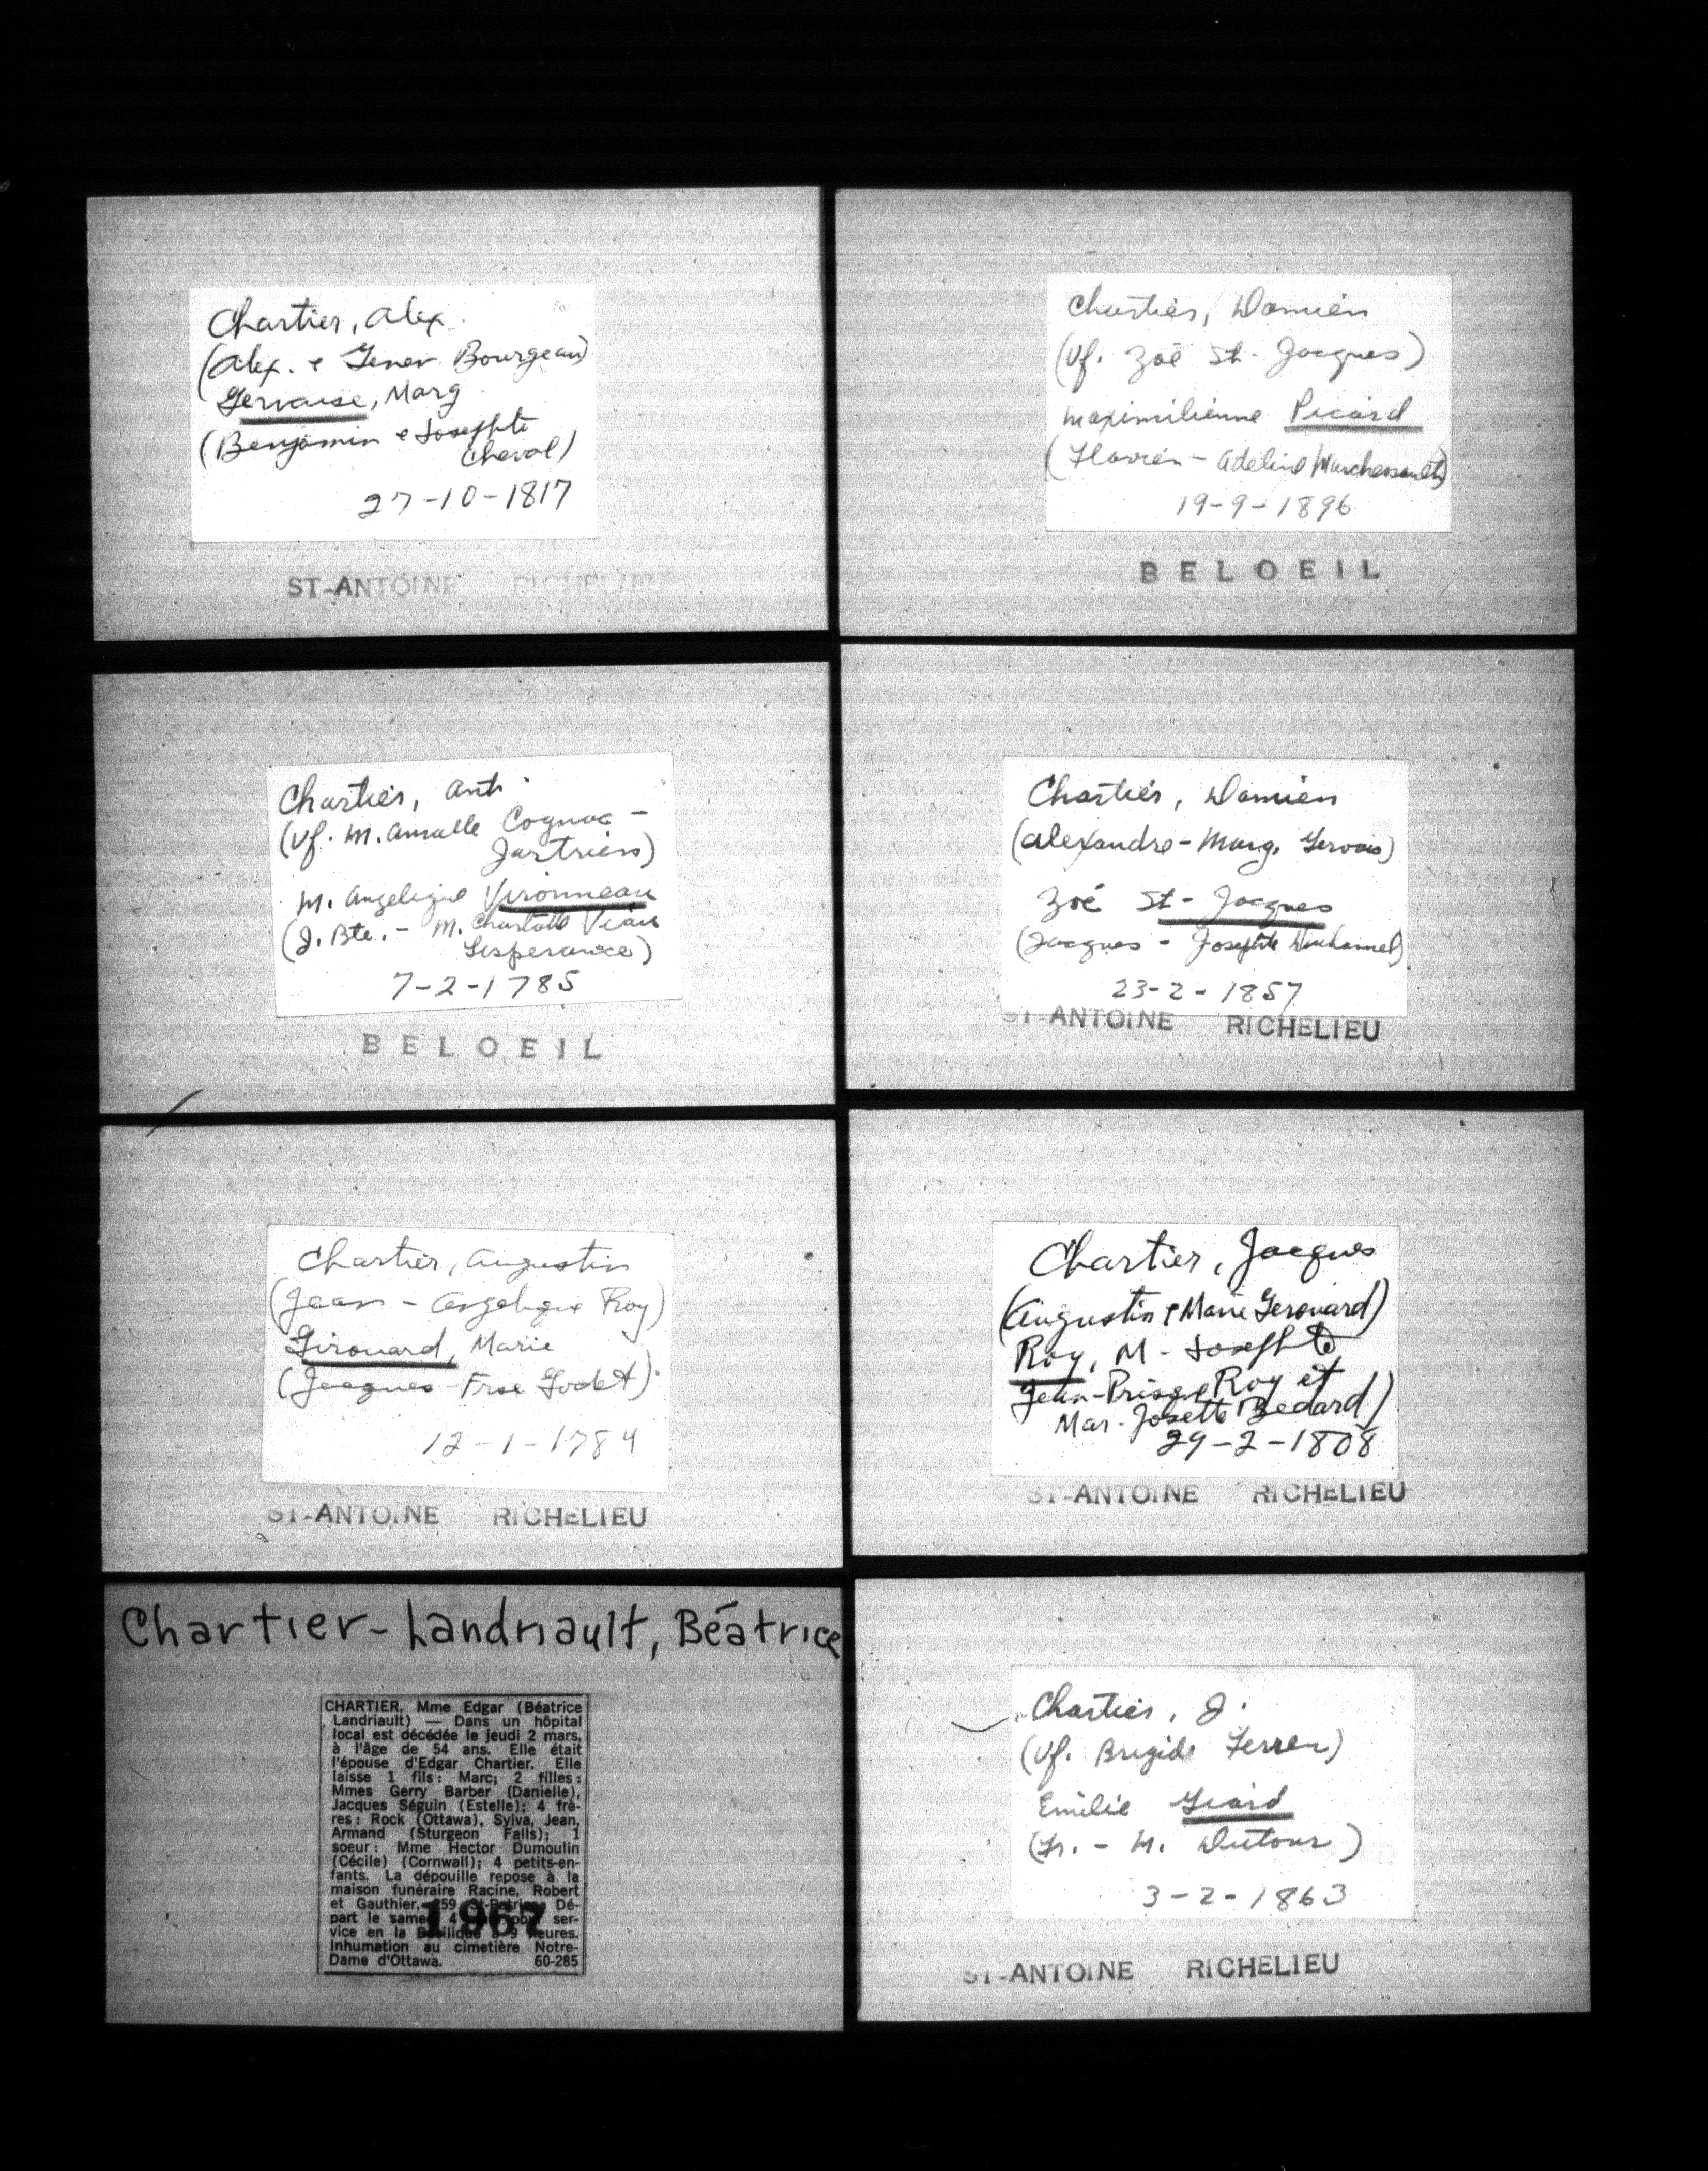 Chartier, Alex.
(Alex. e Genev Bourgeau)
Gervaise, Marg
(Benjamin e Josephte
Cheval)
27-10-1817
ST-ANTOINE RICHELIEU
Chartier, Anti
(Vf. M. Amable Cognac -
Jartrien)
M. Angelique Vironneau
(J. Bte. - M. Charlotte Viau
Lesperance)
7-2-1785
BELOEIL
Chartier, Augustin
(Jean - Angelique Roy)
Girouard, Marie
(Jacques - Frse Godet)
12-1-1784
ST-ANTOINE RICHELIEU
Chartier-Landriault, Béatrice
CHARTIER, Mme Edgar (Béatrice
Landriault) — Dans un hôpital
local est décédée le jeudi 2 mars,
à l'âge de 54 ans. Elle était
l'épouse d'Edgar Chartier. Elle
laisse 1 fils: Marc; 2 filles:
Mmes Gerry Barber (Danielle),
Jacques Séguin (Estelle); 4 frè-
res: Rock (Ottawa), Sylva, Jean,
Armand (Sturgeon Falls); 1
soeur: Mme Hector Dumoulin
(Cécile) (Cornwall); 4 petits-en-
fants. La dépouille repose à la
maison funéraire Racine, Robert
et Gauthier, 259 St-Patrice. Dé-
part le samedi 4 pour ser-
vice en la Basilique à 9 heures.
Inhumation au cimetière Notre-
Dame d'Ottawa. 60-285
1967
Chartier, Damien
(Vf. Zoé St-Jacques)
Maximilienne Picard
(Flavien - Adeline Marchessault)
19-9-1896
BELOEIL
Chartier, Damien
(Alexandre - Marg. Gervais)
Zoé St-Jacques
(Jacques - Josephte Duhamel)
23-2-1857
ST-ANTOINE RICHELIEU
Chartier, Jacques
(Augustin e Marie Gerouard)
Roy, M-Josephte
Jean-Prisque Roy et
Mar-Josette Bedard)
29-2-1808
ST-ANTOINE RICHELIEU
Chartier, J.
(Vf. Brigide Ferren)
Emilie Giard
(Fr. - M. Dutour)
3-2-1863
ST-ANTOINE RICHELIEU